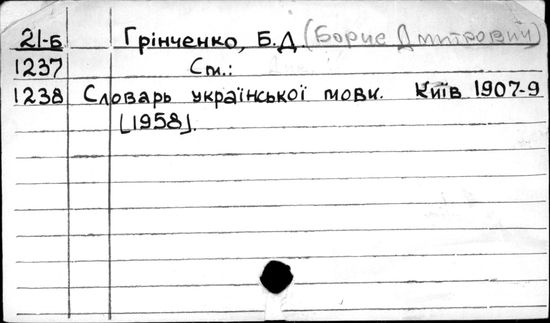 21-Б Грінченко, Б.Д. (Борис Дмитрович)
1237 См.:
1238 Словарь української мови. Київ 1907-9
[1958].